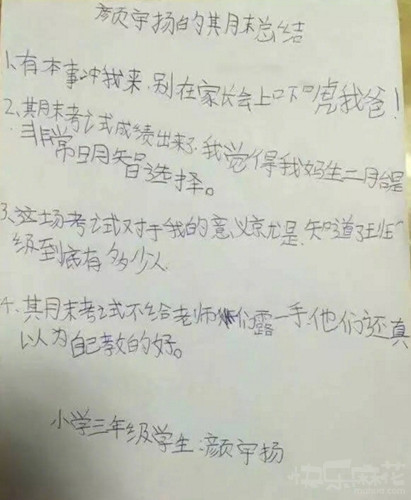 颜宇扬的期末总结
1、有本事冲我来,别在家长会上吓唬我爸!
2、期末考试成绩出来了,我觉得我妈生二胎是
非常明智选择。
3、这场考试对于我的意义就是,知道了班
级到底有多少人
4、期末考试不给老师们露一手,他们还真
以为自己教的好。
小学三年级学生:颜宇扬
快乐麻花